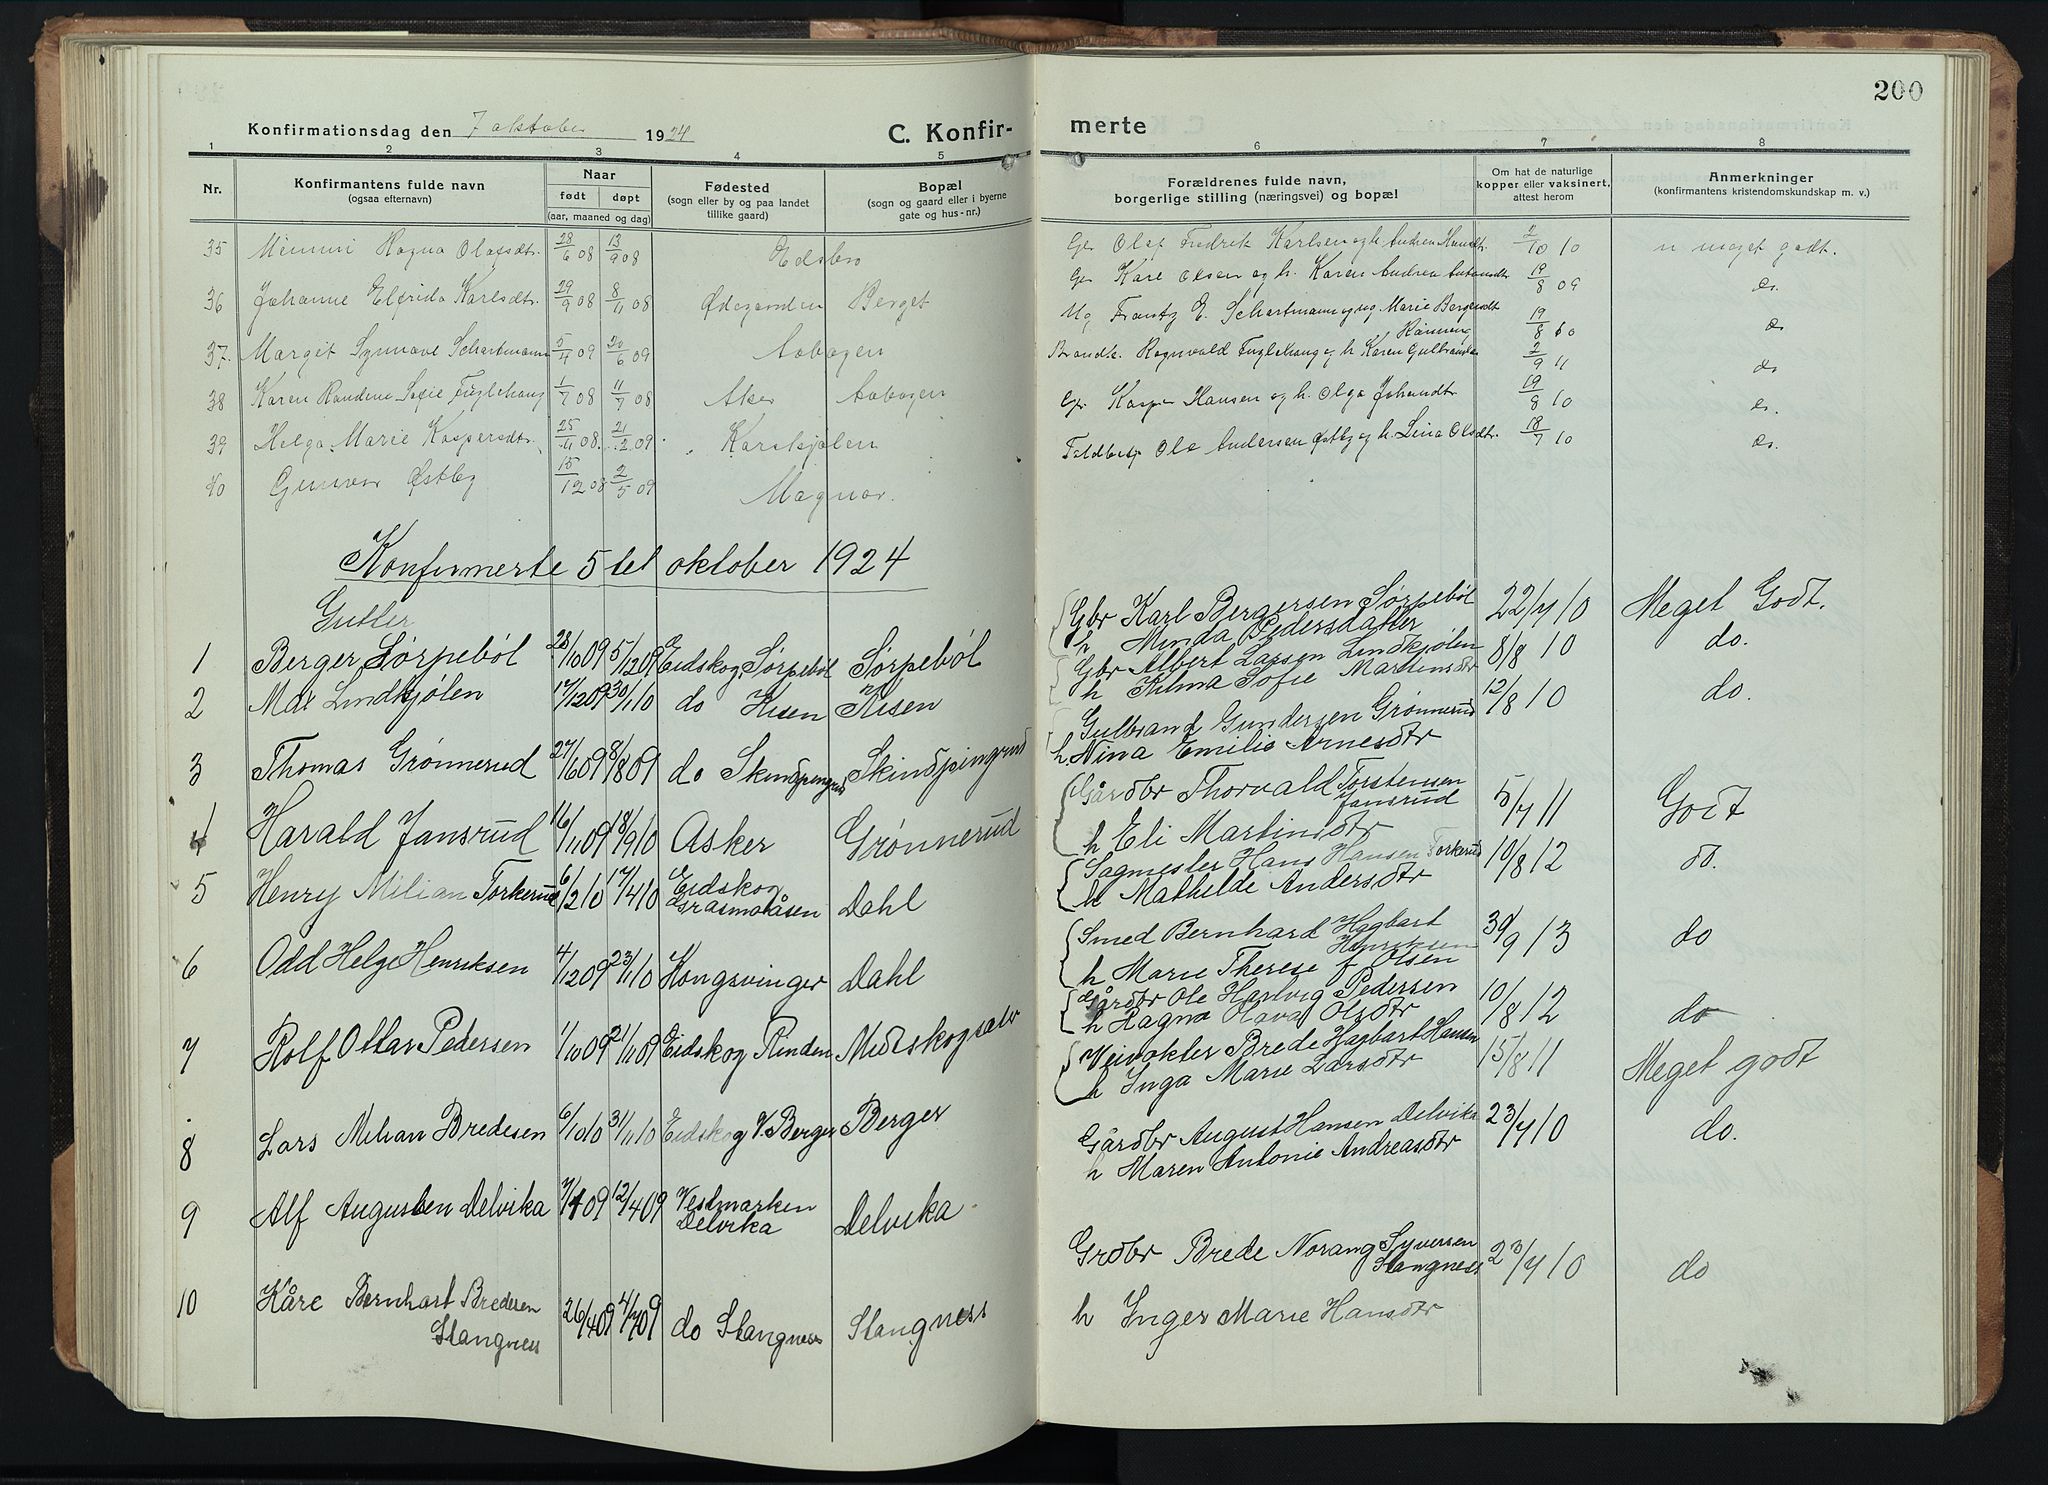 200
Konfirmationsdag den 7 oktober 1924 C. Konfir- merte
1 2 3 4 5 6 7 8
Nr. Konfirmantens fulde navn (ogsaa efternavn) Naar født døpt (aar, maaned og dag) Fødested (sogn eller by og paa landet tillike gaard) Bopæl (sogn og gaard eller i byerne gate og hus-nr.) Forældrenes fulde navn, borgerlige stilling (næringsvei) og bopæl Om hat de naturlige kopper eller vaksinert, attest herom Anmerkninger (konfirmantens kristendomskundskap m. v.)
35 Mimmi Ragna Olafsdtr. 28/6 08 13/9 08 Edsbro Gbr Olaf Fredrik Karlsen og h. Andrea 2/10 10 meget godt.
36 Johanne Elfrida Karlsdtr. 29/9 08 8/11 08 Ødegarden Berget Gbr Kare Olsen og h. Karen Andrea 19/8 09 do.
37. Margit Synnøve Schartmann 5/4 09 20/6 09 Aabogen Ug Frantz E. Schartmann og ug Marie Bergersdt Rønning 19/8 10 do
38 Karen Randine Sofie Fuglehaug 1/7 08 11/7 08 Aker Aabogen Ragnvald Fuglehaug og h Karen 2/9 11 do
39 Helga Marie Kaspersdtr. 25/11 08. 21/12 09 Karskjølen Gbr Kasper Hansen og h. Olga Johansdtr 19/8 10 do.
40 Gunvor Østby 15/12 08 2/5 09 Magnor. Ole Andersen Østby og h. Lina Olsdtr. 18/7 10 do.
Konfirmerte 5 te oktober 1924
Gutter
1 Berger Sørpebøl 28/10 09 5/12 09 Eidskog Sørpebøl Sørpebøl Gbr Karl Bergersen Sørpebøl 22/7 10 Meget Godt.
h Minda Pedersdatter
2 Max Lindkjølen 17/12 09 30/1 10 do Risen Risen Gbr Albert Larsen Lindkjølen 8/8 10 do.
h Hilma Sofie Martinsdtr
3 Thomas Grønnerud 27/6 09 8/8 09 do Skinpingrud Skinpingrud Gulbrand Gundersen Grønnerud 12/8 10 do.
h. Nina Emilie Arnesdtr
4 Harald Jansrud 16/11 09 18/9 10 Asker Grønnerud Gårdbr Thorvald Torstensen Jansrud 5/7 11 Godt
h Eli Martinsdtr
5 Henry Milian Torkerud 6/2 10 17/4 10 Eidskog Grasmoåsen Dahl Sagmester Hans Hansen Torkerud 10/8 12 do.
h Mathilde Andersdtr
6 Odd Helge Henriksen 4/12 09 23/1 10 Kongsvinger Dahl Smed Bernhard Hagbart Henriksen 30/9 13 do
h Marie Therese f Olsen
7 Rolf Ottar Pedersen 1/10 09 21/11 09 Eidskog Rinden Midtskogsælv Gårdbr Ole Hartvig Pedersen 10/8 12 do
h Ragna Olsdtr
8 Lars Milian Bredesen 6/10 10 31/1 10 Eidskog V. Berger Berger Veivokter Brede Hagbart Hansen 15/8 11 Meget godt
h Inga Marie Larsdtr
9 Alf Augusten Delvika 7/1 09 12/4 09 Vestmarken Delvika Delvika Gårdbr August Hansen Delvika 23/7 10 do.
h Maren Antonie Andreasdtr
10 Kåre Bernhart Bredesen Stangness 26/4 09 4/7 09 do Stangness Stangness Grdbr Brede Norang Syversen Stangness 23/7 10 do
h Inger Marie Hansdtr